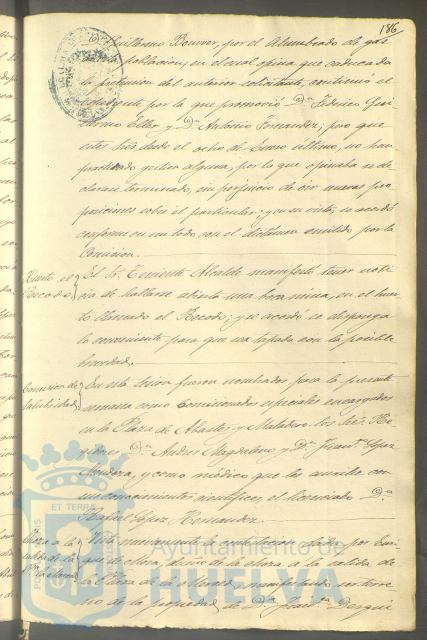 186
Guillermo Bouvier, por el Alumbrado de gas
poblacion, en el cual opina que caducada
la peticion del anterior solicitante, continuó el
espediente por la que promovió Dn. Federico Gui-
llermo Eller y Dn. Antonio Fernandez; pero que
estos Sres. desde el ocho de Enero último, no han
practicado gestion alguna, por lo que opinaba se de-
clarase terminado, sin perjuicio de oir nuevas pro-
posiciones sobre el particular; y en su vista, se acordó
conforme en un todo con el dictámen emitido por la
Comision.
Huerto el
Recodo
El Sr. Teniente Alcalde manifestó tener noti-
cia de hallarse abierta una boca mina, en el huer-
to llamado el Recodo; y se acordó se disponga
lo conveniente para que sea tapada con la posible
brevedad.
Comision de
Salubridad
En esta sesion fueron nombrados para la presente
semana como Comisionados especiales encargados
en la Plaza de Abastos y Matadero los Sres. Re-
gidores Dn. Andres Magdaleno y Dn. Franco. Lopez
Mendoza, y como médico que les auxilie con
sus conocimientos cientificos, el licenciado Dn.
Rafael Lopez Hernandez.
de la
Merced
Vista nuevamente la dada por
de la á la salida de
la Plaza de la Merced, y manifestando ser terre-
no de la propiedad de
ET TERRÆ
Ayuntamiento de
HUELVA